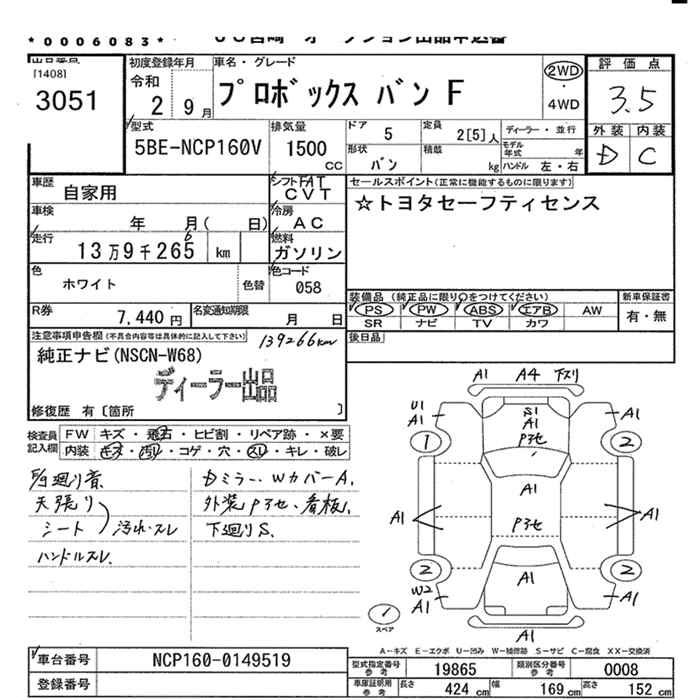 *0006083*
[1408]
3051
初度登録年月
令和
2 9月
車名・グレード
プロボックス バン F
2WD
・
4WD
評価点
3.5
外装 内装
D C
型式
5BE-NCP160V
排気量
1500
CC
ドア
5
定員
2[5]人
ディーラー・並行
形状
バン
積載
kg
モデル年式
年
ハンドル 左・右
車歴
自家用
シフト FAT
CVT
車検
年 月( 日)
冷房
AC
走行
13万9千265 km
6
燃料
ガソリン
色
ホワイト
色替
色コード
058
R券
7,440 円
名変通知期限
月 日
セールスポイント(正常に機能するものに限ります)
☆トヨタセーフティセンス
装備品 (純正品に限り○をつけてください)
新車保証書
PS PW ABS エアB AW
SR ナビ TV カワ
有・無
後日品
注意事項申告欄(不具合内容等は具体的に記入して下さい)
139266km
純正ナビ(NSCN-W68)
ディーラー出品
修復歴 有〔箇所 〕
検査員記入欄
FW キズ・飛石・ヒビ割・リペア跡・×要
内装 キズ・汚れ・コゲ・穴・スレ・キレ・破レ
天張り
シート
汚れ・スレ
ハンドルスレ.
Dミラー、WカバーA.
外装Pヌケ、看板.
下廻りS.
A1 A4 下スリ
U1
A1
S1
A1
A1
1
2
A1
A1
A1
2
2
W2
A1
A1
A1
A1
スペア
A-キズ E-エクボ U-凹み W-補修跡 S-サビ C-腐食 XX-交換済
車台番号
NCP160-0149519
登録番号
型式指定番号
参考
19865
類別区分番号
参考
0008
車庫証明用
参考
長さ
424 cm
幅
169 cm
高さ
152 cm